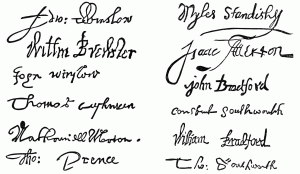 Edw: Winslow
Willm Bradford
John winslow
Thomas Cushman
Nathaniell Morton.
Tho: Prence
Myles Standish
Isaac Allerton
John Bradford
constant Southworth
William Bradford
Tho: Southworth